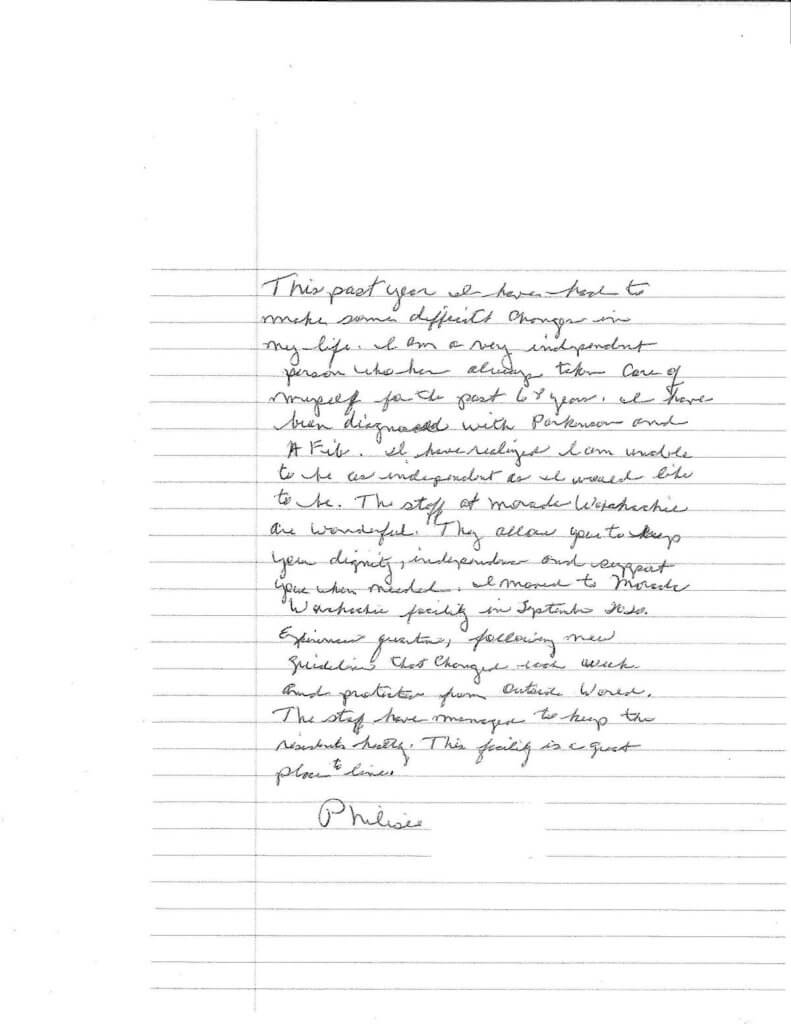 This past year I have had to
make some difficult changes in
my life. I am a very independent
person who has always taken care of
myself for the past 68 years. I have
been diagnosed with Parkinson and
A Fib. I have realized I am unable
to be as independent as I would like
to be. The staff at Morada Waxahachie
are wonderful. They allow you to keep
your dignity, independence and support
you when needed. I moved to Morada
Waxahachie facility in September 2020.
Experience quarantine, following new
guidelines that changed each week
and protection from outside world.
The staff have managed to keep the
residents healthy. This facility is a great
place to live.
Philise